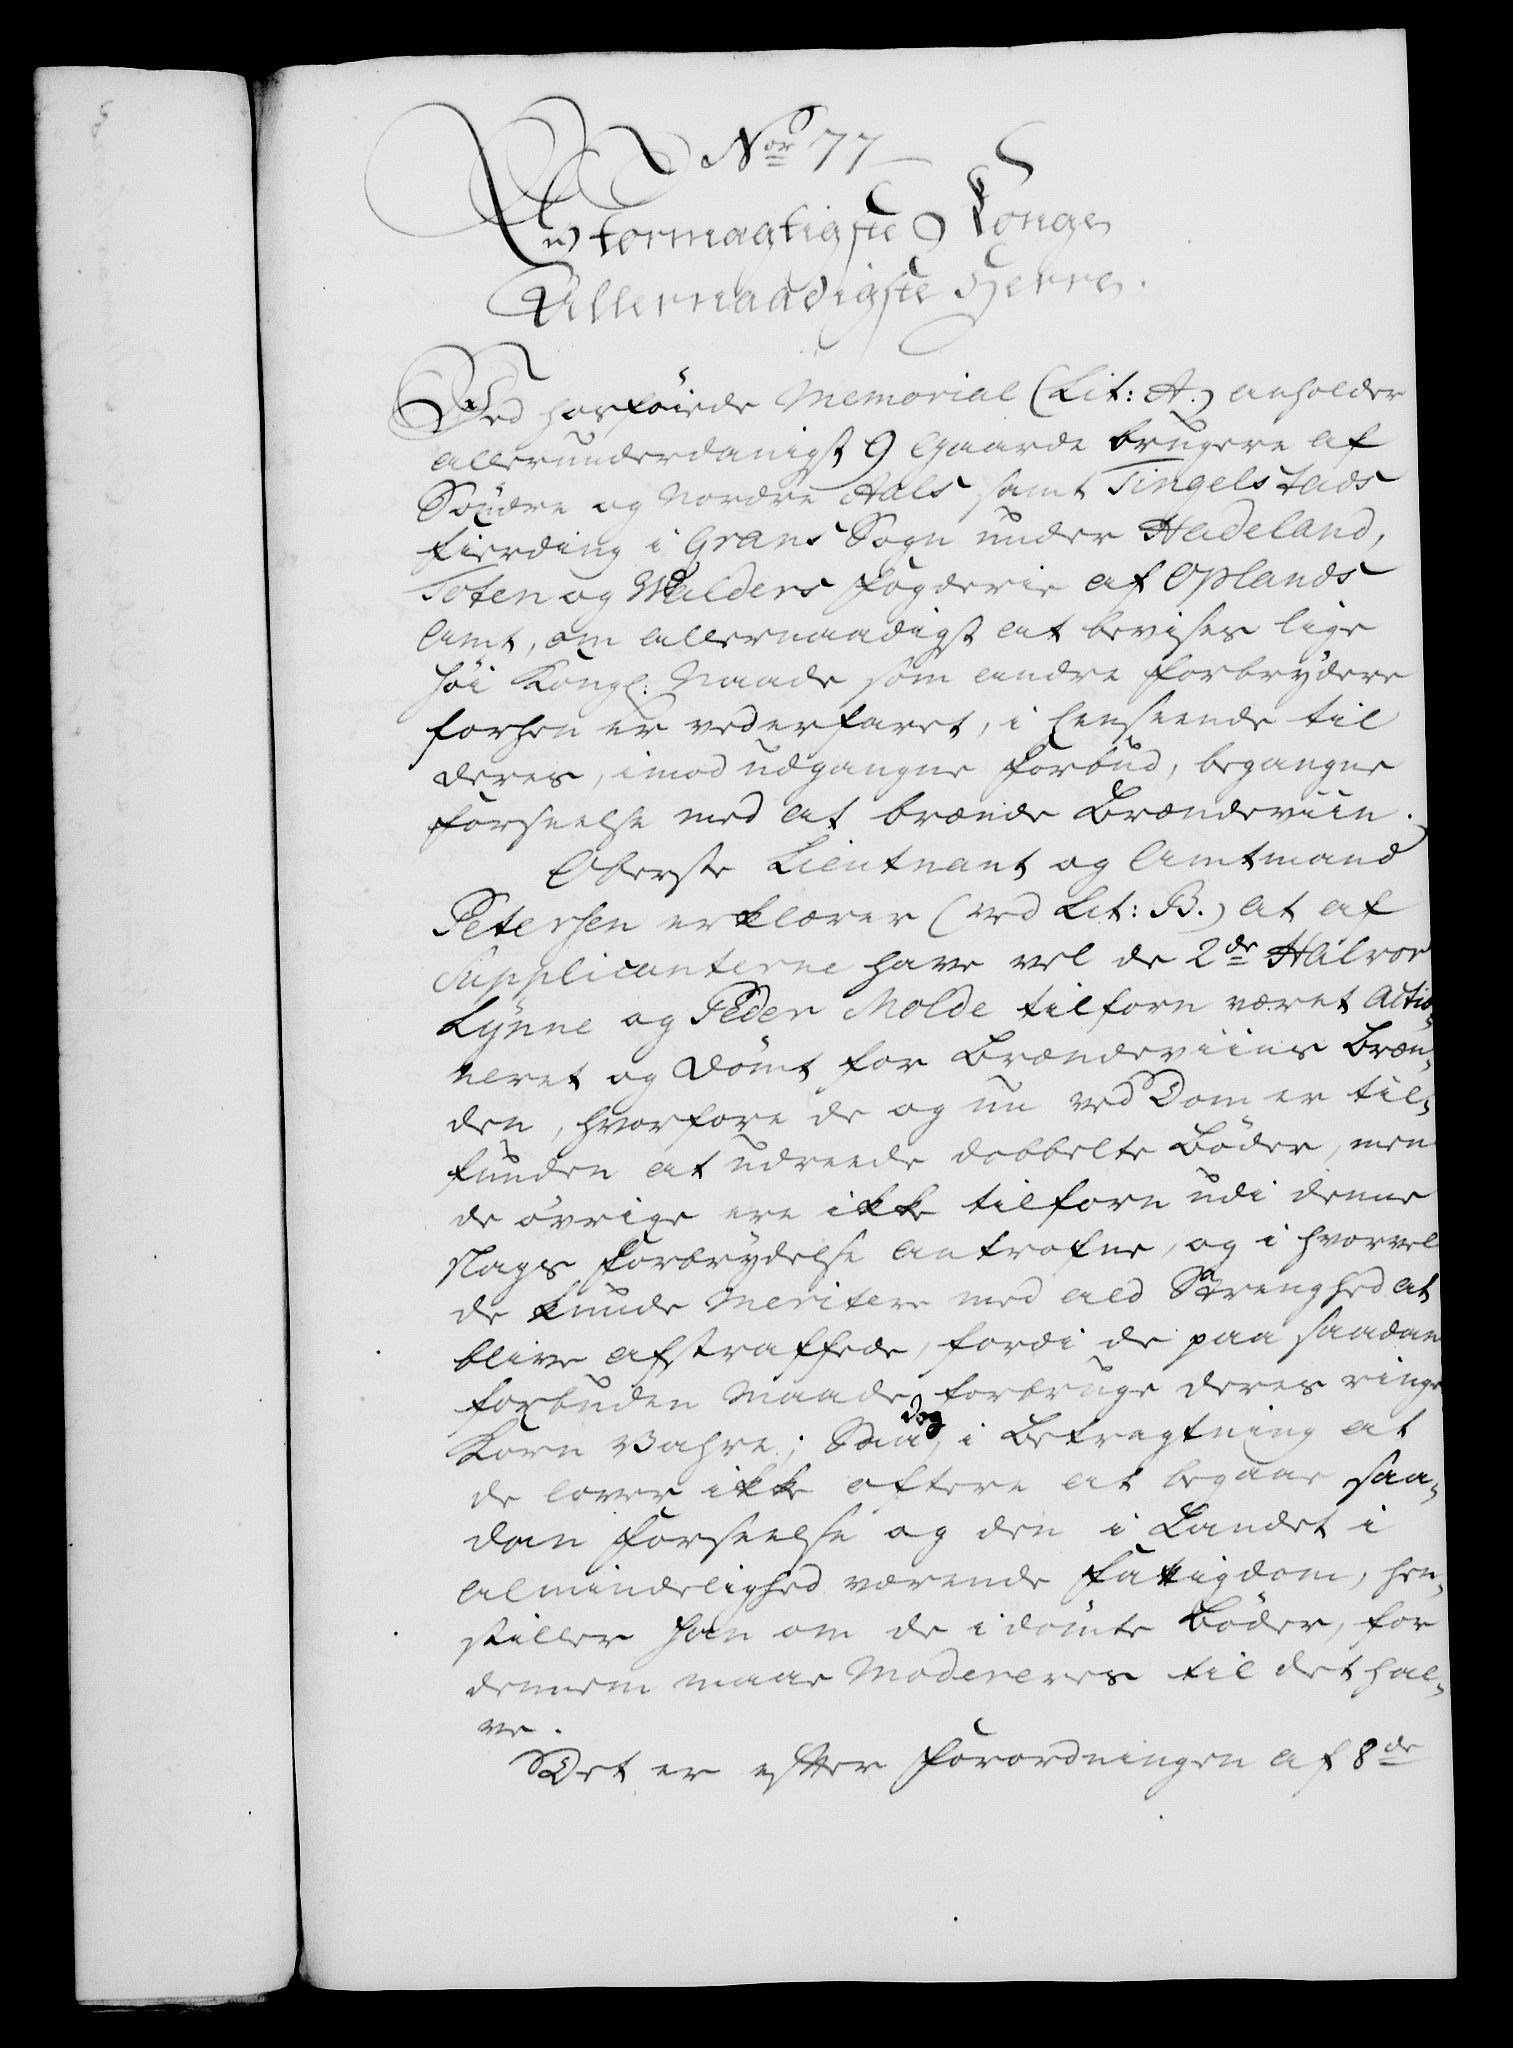 Nor 77
Stormægtigste Konge
Allernaadigste Herre.
Ved hosføiede Memorial (Lit: A.) anholder
allerunderdanigst 9 Gaarde brugere af
Søndre og Nordre Aals samt Tingelstads
Fierding i Grans Sogn under Hadeland,
Toten og Walders Fogderie af Oplands
Amt, om allernaadigst at bevises lige
høi Kongl: Naade som andre Forbrydere
forhen er vederfaret, i Henseende til
deres, imod udgangne Forbud, begangne
Forseelse med at brænde Brændeviin.
Oberste Lieutnant og Amtmand
Petersen erklærer (ved Lit: B.) at af
Supplicanterne have vel de 2de Halvor
Lynne og Peder Molde tilforn været Actio-
neret og Dømt for Brændeviins Bræn-
den, hvorfore de og nu ved Dom er til-
funden at udreede dobbelte Bøder, men
de øvrige ere ikke tilforn udi denne
slags Forbrydelse antrofne, og i hvorvel
de kunde meritere med ald Strenghed at
blive afstraffede, fordi de paa saadan
forbuden Maade forbruge deres ringe
Korn Vahre; Saa dog, i Betragtning at
de lover ikke oftere at begaae saa-
dan Forseelse og den i Landet i
almindelighed værende Fattigdom, hen-
stiller han om de idømte Bøder, for
dennem maae Modereres til det hal-
ve.
Det er efter Forordningen af 8de